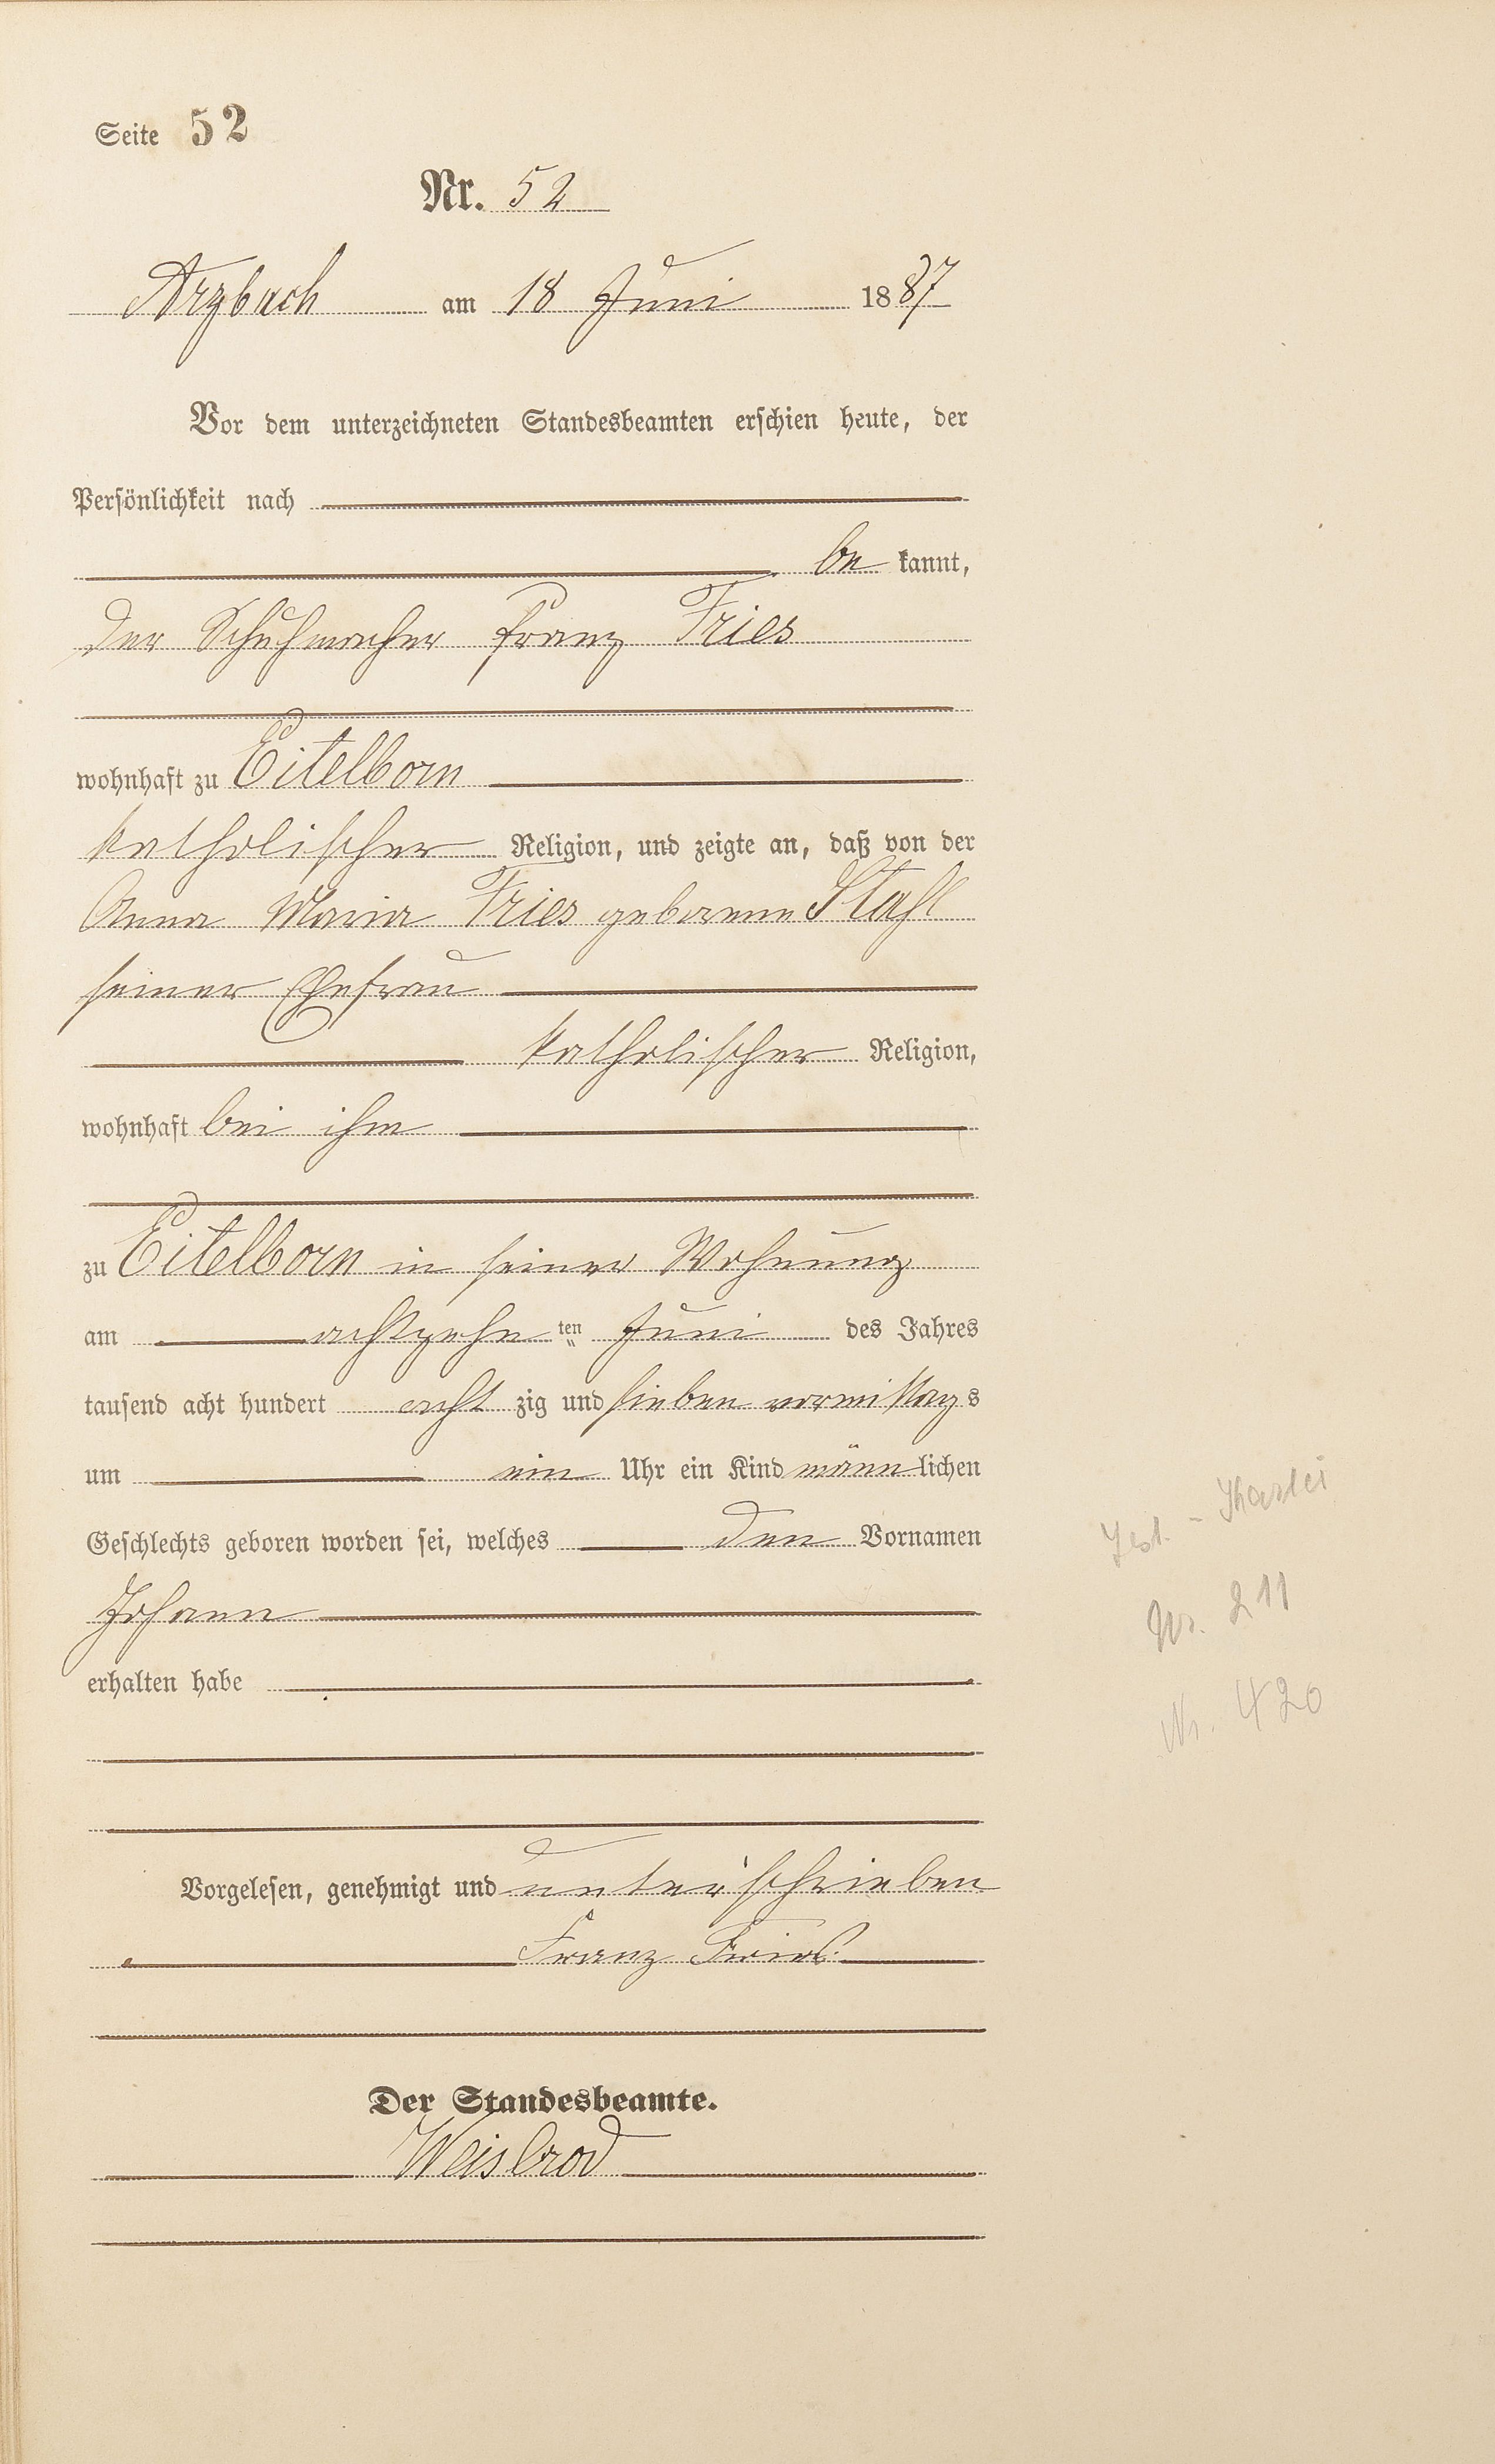 Seite 52
Nr. 52
Arzbach am 18 Juni 1887
Vor dem unterzeichneten Standesbeamten erschien heute, der
Persönlichkeit nach
be kannt,
der Schuhmacher Franz Fries
wohnhaft zu Eitelborn
katholischer Religion, und zeigte an, daß von der
Anna Maria Fries geborene Stahl
seiner Ehefrau
katholischer Religion,
wohnhaft bei ihm
zu Eitelborn in seiner Wohnung
am achtzehn ten Juni des Jahres
tausend acht hundert acht zig und sieben vormittags
um ein Uhr ein Kind männlichen
Geschlechts geboren worden sei, welches den Vornamen
Johann
erhalten habe
Vorgelesen, genehmigt und unterschrieben
Franz Fries.
Der Standesbeamte.
Weisbrod
Nr. 211
Nr. 420